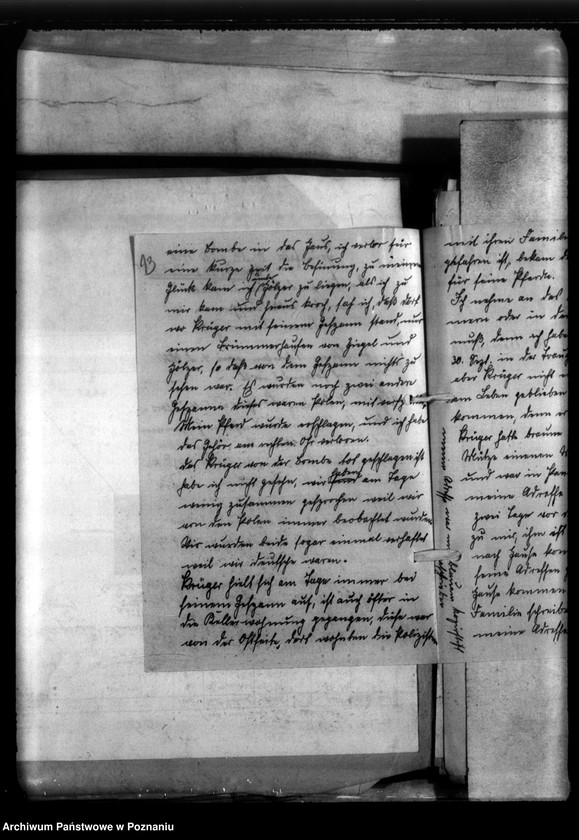 93
eine Bombe in das Haus, ich verlor für
eine kurze Zeit die Besinnung, zu meinem
Glück kam ich Hölzer zu liegen, als ich zu
mir kam und heraus kroch, sah ich, daß dort
wo Krüger mit seinem Gespann stand, nur
einen Trümmerhaufen von Ziegel und
Hölzer, so daß von dem Gespann nichts zu
sehen war. Es wurden noch zwei andere
Gespanne dieses waren Polen, mit
Mein Pferd wurde erschlagen, und ich habe
das Gehör am rechten Ohr verloren.
Das Krüger von der Bombe tot geschlagen ist
habe ich nicht gesehn, wir haben am Tage
wenig zusammen gesprochen weil wir
von den Polen immer beobachtet wurden.
Wir wurden beide sogar einmal verhaftet
weil wir Deutsche waren.
Krüger hielt sich am Tage immer bei
seinem Gespann auf, ist auch öfter in
die Kellerwohnung gegangen, diese war
von der Ostseite, dort wohnten die Polizisten
mit ihren Familie
gefahren ist, bekam
für seine Pferde.
Ich nehme an das
oder in
muß, denn ich habe
30. Sept. in der
aber Krüger nicht
am Leben geblieben
kommen, denn er
Krüger hatte braune
Mütze einen
und war in
meine Adresse
zwei Tage vor
zu mir, ihm ist
nach Hause kom
seine Adressen
Hause kommen
Familie schreiben
meine Adresse
Archiwum Państwowe w Poznaniu